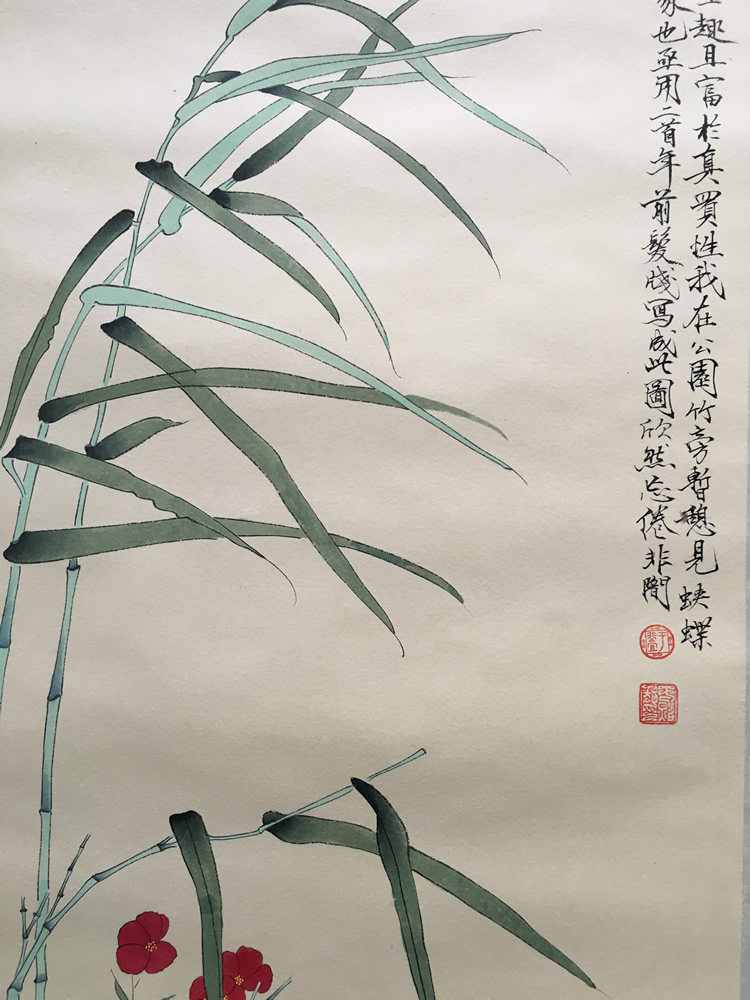 趣且富於真實性我在公園竹旁暫憩見蛺蝶
也亟用二百年前髮牋寫成此圖欣然忘倦非闇